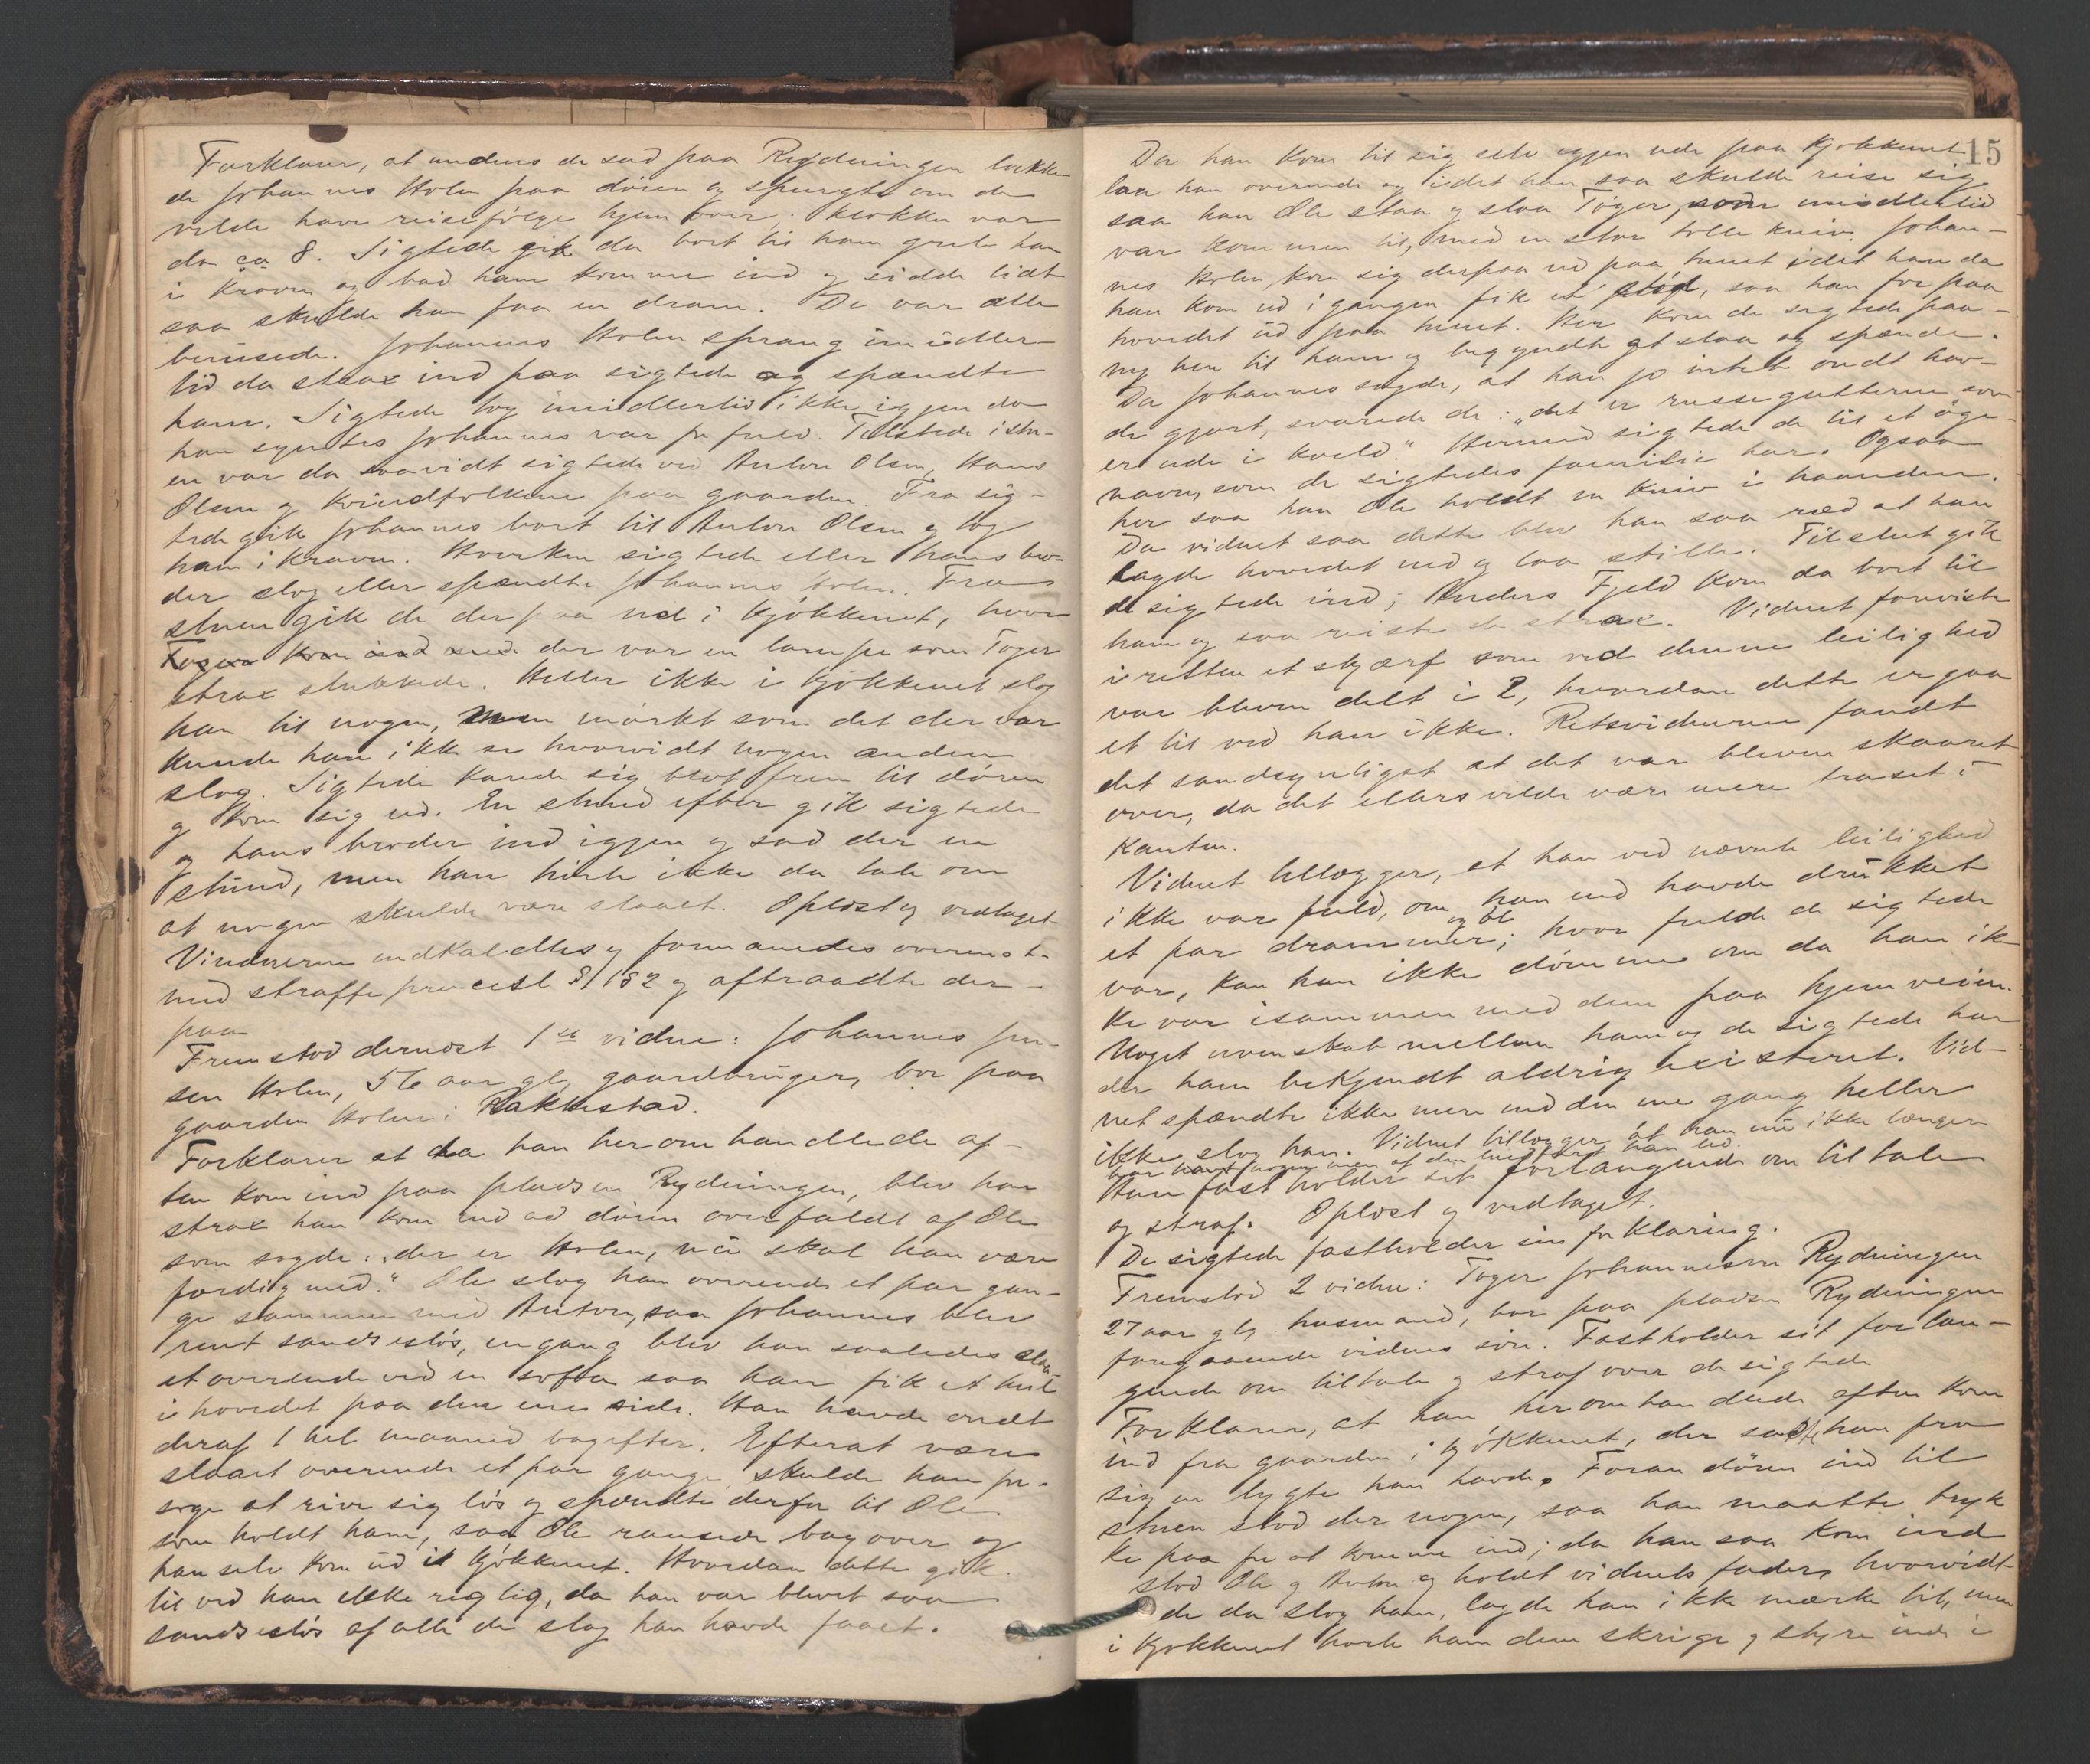 Forklarer, at medens de sad paa Rydningen bakke-
de Johannes Holen paa døren og spurgte om de
vilde have reisefølge hjem over; klokken var
da ca 8. Sigtede gik da bort til ham greb ham
i Kraven og bad ham komme ind og sidde lidt
saa skulde han faa en dram. De var alle
berusede. Johannes Holen sprang imidler-
tid da strax ind paa sigtede og spændte
ham. Sigtede tog imidlertid ikke igjen da
han syntes Johannes var for fuld. Tilstede i stu-
en var da saavidt sigtede ved Anton Olsen, Hans
Olsen og Kvindfolkene paa gaarden. Fra sig-
tede gik Johannes bort til Anton Olsen og tog
ham i Kraven. Hverken sigtede eller hans bro-
der slog eller spændte Johannes Holen. Fra
stuen gik de derpaa ud i Kjøkkenet, hvor
der var en lampe som Toger
strax slukkede. Heller ikke i Kjøkkenet slog
han til nogen, men mørkt som det der var
kunde han ikke se hvorvidt nogen anden
slog. Sigtede kavede sig blot frem til døren
og kom sig ud. En stund efter gik sigtede
og hans broder ind igjen og sad der en
stund, men han hørte ikke da tale om
at nogen skulde være slaaet. Oplæst og vedtaget.
Vidnerne indkaldtes og formanedes overenst.
med straffeprocesl § 182 og aftraadte der-
paa
Fremstod dernæst 1ste vidne: Johannes Jen-
sen Holen, 56 aar gl, gaardbruger, bor paa
gaarden Holen i Rakkestad.
Forklarer at da han heromhandlede af-
ten kom ind paa pladsen Rydningen, blev han
strax han kom ind ad døren overfaldt af Ole
som sagde: "der er Holen, nu skal han være
færdig med." Ole slog ham overende et par gan-
ge sammen med Anton, saa Johannes blev
rent sandsesløs, engang blev han saaledes slaa-
et overende ved en soffa saa han fik et hul
i hovedet paa den ene side. Han havde ondt
deraf 1 hel maaned bagefter. Efterat være
slaaet overende et par gange skulde han for-
søge at rive sig løs og spændte derfor til Ole
som holdt ham, saa Ole ramlede bagover og
han selv kom ud i Kjøkkenet. Hvordan dette gik
til ved han ikke rigtig, da han var blevet saa
sandsesløs af alle de slag han havde faaet.
15
Da han kom til sig selv igjen ude paa Kjøkkenet
laa han overende og idet han saa skulde reise sig
saa han Ole staa og slaa Toger, som imidlertid
var kommen til, med en stor tollekniv. Johan-
nes Holen kom sig derpaa ud paa tunet idet han da
han kom ud i gangen fik et stød, saa han for paa
hovedet ud paa tunet. Her kom de sigtede paa-
ny hen til ham og begyndte at slaa og spænde.
Da Johannes sagde, at han jo intet ondt hav-
de gjort, svarede de: "det er russegutterne som
er ude i kveld." Hermed sigtede de til et øge-
navn, som de sigtedes familie har. Ogsaa
her saa han Ole holdt en Kniv i haanden.
Da vidnet saa dette blev han saa ræd at han
lagde hovedet ned og laa stille. Tilslut gik
de sigtede ind; Anders Fjeld kom da bort til
ham og saa reiste de strax. Vidnet foreviste
i retten et skjærf som ved denne leilighed
var bleven delt i 2, hvordan dette er gaa
et til ved han ikke. Retsvidnerne fandt
det sandsynligst at det var bleven skaaret
over, da det ellers vilde være mere traset i
Kanten.
Vidnet tillægger, at han ved nævnte leilighed
ikke var fuld, om han end havde drukket
et par drammer og øl; hvor fulde de sigtede
var, kan han ikke dømme om da han ik-
ke var isammen med dem paa hjemveien.
Noget uvenskab mellem ham og de sigtede har
der ham bekjendt aldrig existeret. Vid-
net spændte ikke mere end den ene gang heller
ikke slog han. Vidnet tillægger at han nu ikke længere
har havt noget men af den han led.
Han fastholder sit forlangende om tiltale
og straf. Oplæst og vedtaget.
De sigtede fastholder sin forklaring.
Fremstod 2 vidne: Toger Johannesen Rydningen
27 aar gl, husmand, bor paa pladsen Rydningen
foregaaende vidnes søn. Fastholder sit forlan-
gende om tiltale og straf over de sigtede
Forklarer, at han heromhandlede aften kom
ind fra gaarden i kjøkkenet, der satte han fra
sig en lygte han havde. Foran døren ind til
stuen stod der nogen, saa han maatte tryk
ke paa for at komme ind; da han saa kom ind
stod Ole og Anton og holdt vidnets fader, hvorvidt
de da slog ham, lagde han ikke mærke til, men
i kjøkkenet hørte han dem skrige og styre inde i